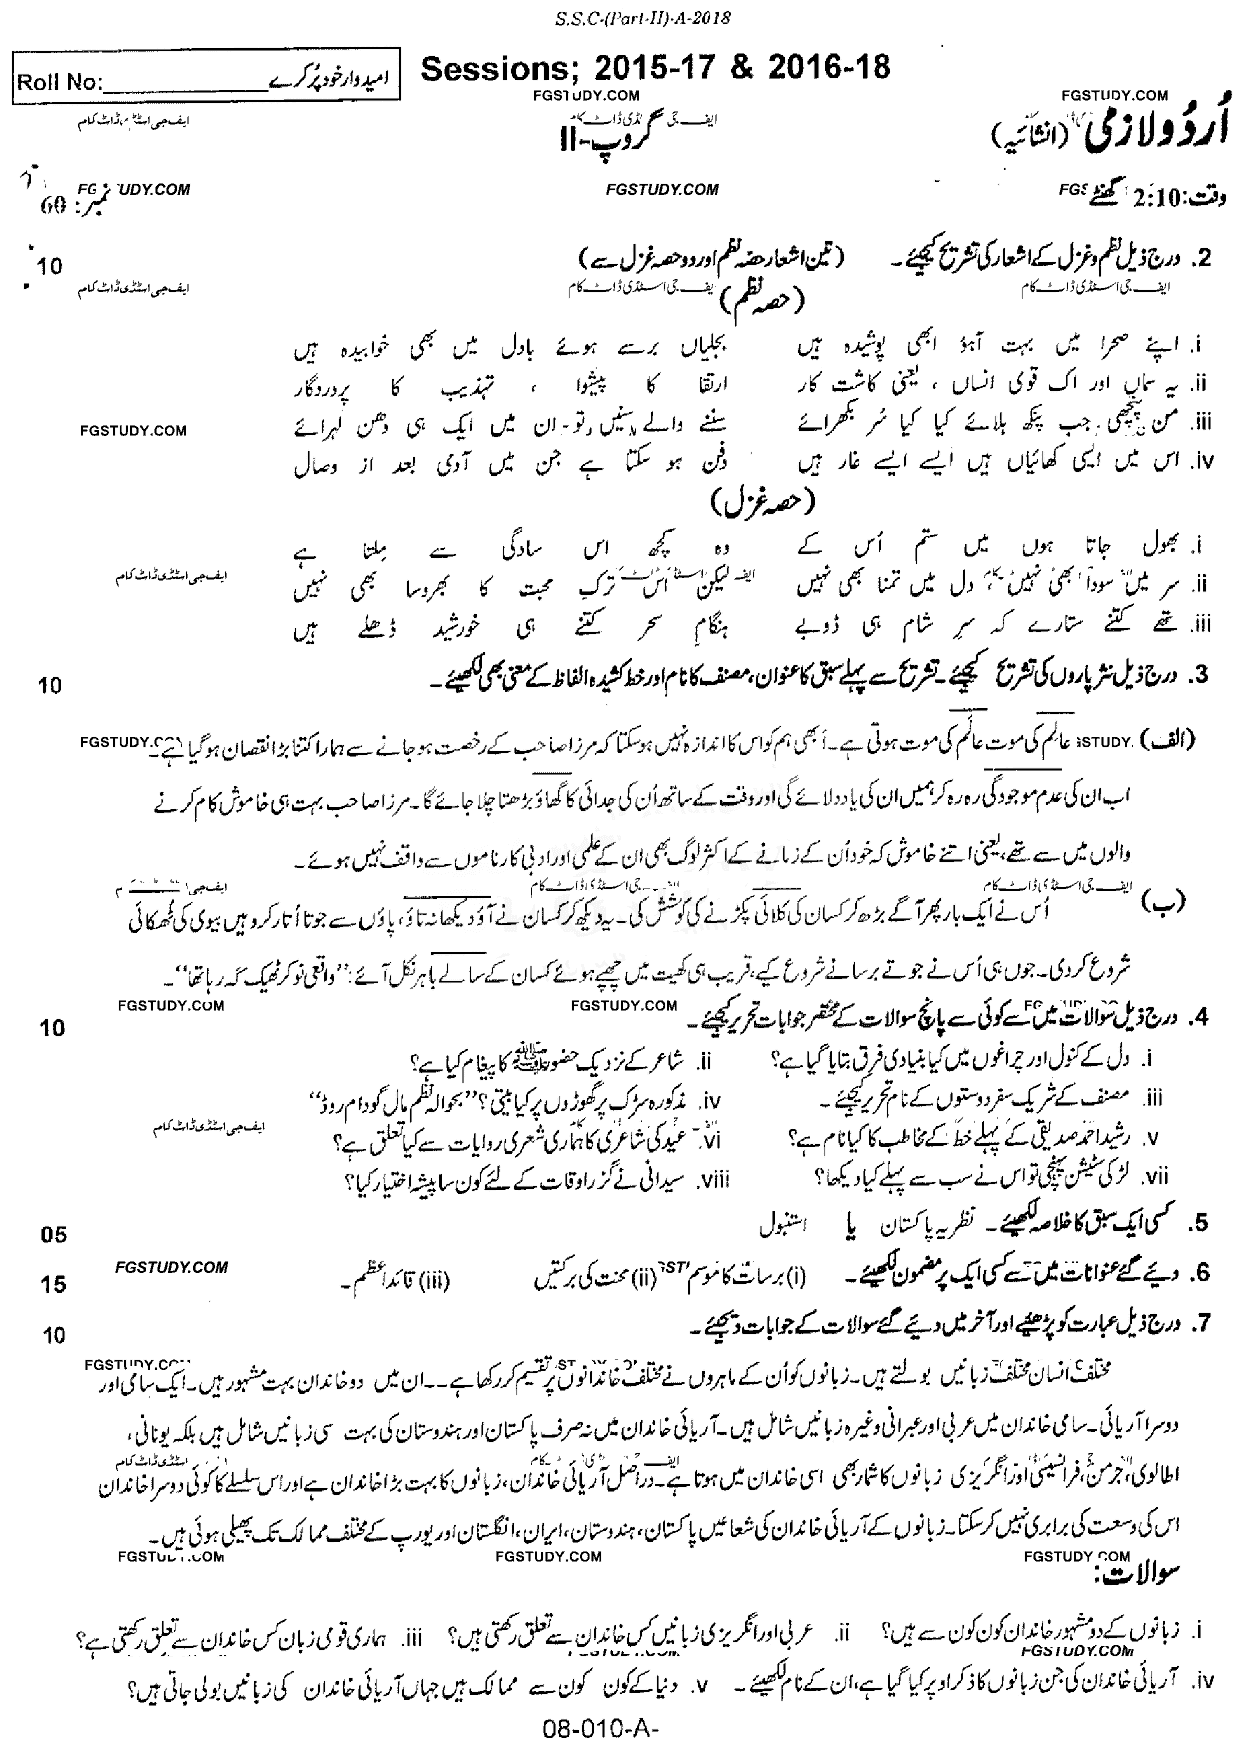 S.S.C-(Part-II)-A-2018
Roll No:____________ امیدوار خود پُر کرے
Sessions; 2015-17 & 2016-18
FGSTUDY.COM FGSTUDY.COM
اُردُو لازمی (انشائیہ) گروپ-II ایف جی اسٹڈی ڈاٹ کام
FGSTUDY.COM FGSTUDY.COM
وقت: 2:10 گھنٹے نمبر: 60
2. درج ذیل نظم و غزل کے اشعار کی تشریح کیجئے۔ (تین اشعار حصہ نظم اور دو حصہ غزل سے) 10
ایف جی اسٹڈی ڈاٹ کام ایف جی اسٹڈی ڈاٹ کام
(حصہ نظم)
i. اپنے صحرا میں بہت آہو ابھی پوشیدہ ہیں بجلیاں برسے ہوئے بادل میں بھی خوابیدہ ہیں
ii. یہ سماں اور اک قوی انساں ، یعنی کاشت کار ارتقا کا پیشوا ، تہذیب کا پروردگار
iii. من پنچھی جب پنکھ ہلائے کیا کیا سُر بکھرائے سننے والے سنیں تو ان میں ایک ہی دھن لہرائے
FGSTUDY.COM
iv. اس میں ایسی کھائیاں ہیں ایسے ایسے غار ہیں دفن ہو سکتا ہے جن میں آدمی بعد از وصال
(حصہ غزل)
i. بھول جاتا ہوں میں ستم اُس کے وہ کچھ اس سادگی سے ملتا ہے
ایف جی اسٹڈی ڈاٹ کام
ii. سر میں سودا بھی نہیں دل میں تمنا بھی نہیں لیکن اس ترکِ محبت کا بھروسا بھی نہیں
iii. تھے کتنے ستارے کہ سرِ شام ہی ڈوبے ہنگامِ سحر کتنے ہی خورشید ڈھلے ہیں
3. درج ذیل نثر پاروں کی تشریح کیجئے۔ تشریح سے پہلے سبق کا عنوان، مصنف کا نام اور خط کشیدہ الفاظ کے معنی بھی لکھیئے۔ 10
(الف) عالِم کی موت عالَم کی موت ہوتی ہے۔ ابھی ہم کو اس کا اندازہ نہیں ہو سکتا کہ مرزا صاحب کے رخصت ہو جانے سے ہمارا کتنا بڑا نقصان ہو گیا ہے۔
اب ان کی عدم موجودگی رہ رہ کر ہمیں ان کی یاد دلائے گی اور وقت کے ساتھ اُن کی جدائی کا گھاؤ بڑھتا چلا جائے گا۔ مرزا صاحب بہت ہی خاموش کام کرنے
والوں میں سے تھے، یعنی اتنے خاموش کہ خود اُن کے زمانے کے اکثر لوگ بھی ان کے علمی اور ادبی کارناموں سے واقف نہیں ہوئے۔
ایف جی اسٹڈی ڈاٹ کام
(ب) اُس نے ایک بار پھر آگے بڑھ کر کسان کی کلائی پکڑنے کی کوشش کی۔ یہ دیکھ کر کسان نے آؤ دیکھا نہ تاؤ، پاؤں سے جوتا اُتار کر وہیں بیوی کی ٹھکائی
شروع کر دی۔ جوں ہی اُس نے جوتے برسانے شروع کیے، قریب ہی کھیت میں چھپے ہوئے کسان کے سالے باہر نکل آئے: "واقعی نوکر ٹھیک کہ رہا تھا"۔
FGSTUDY.COM FGSTUDY.COM
4. درج ذیل سوالات میں سے کوئی سے پانچ سوالات کے مختصر جوابات تحریر کیجئے۔ 10
i. دل کے کنول اور چراغوں میں کیا بنیادی فرق بتایا گیا ہے؟ ii. شاعر کے نزدیک حضور ﷺ کا پیغام کیا ہے؟
iii. مصنف کے شریک سفر دوستوں کے نام تحریر کیجئے۔ iv. مذکورہ سڑک پر گھوڑوں پر کیا بیتی؟ "بحوالہ نظم مال گودام روڈ"
v. رشید احمد صدیقی کے پہلے خط کے مخاطب کا کیا نام ہے؟ vi. عید کی شاعری کا ہماری شعری روایات سے کیا تعلق ہے؟
ایف جی اسٹڈی ڈاٹ کام
vii. لڑکی سٹیشن پہنچی تو اس نے سب سے پہلے کیا دیکھا؟ viii. سیدانی نے گزر اوقات کے لئے کون سا پیشہ اختیار کیا؟
5. کسی ایک سبق کا خلاصہ لکھیئے۔ نظریہ پاکستان یا استنبول 05
6. دیے گئے عنوانات میں سے کسی ایک پر مضمون لکھیئے۔ (i) برسات کا موسم (ii) محنت کی برکتیں (iii) قائداعظم۔ 15
FGSTUDY.COM
7. درج ذیل عبارت کو پڑھیئے اور آخر میں دیے گئے سوالات کے جوابات دیجئے۔ 10
مختلف انسان مختلف زبانیں بولتے ہیں۔ زبانوں کو اُن کے ماہروں نے مختلف خاندانوں پر تقسیم کر رکھا ہے۔۔ ان میں دو خاندان بہت مشہور ہیں۔ ایک سامی اور
دوسرا آریائی۔ سامی خاندان میں عربی اور عبرانی وغیرہ زبانیں شامل ہیں۔ آریائی خاندان میں نہ صرف پاکستان اور ہندوستان کی بہت سی زبانیں شامل ہیں بلکہ یونانی،
اطالوی، جرمن، فرانسیسی اور انگریزی زبانوں کا شمار بھی اسی خاندان میں ہوتا ہے۔ دراصل آریائی خاندان، زبانوں کا بہت بڑا خاندان ہے اور اس سلسلے کا کوئی دوسرا خاندان
اس کی وسعت کی برابری نہیں کر سکتا۔ زبانوں کے آریائی خاندان کی شعاعیں پاکستان، ہندوستان، ایران، انگلستان اور یورپ کے مختلف ممالک تک پھیلی ہوئی ہیں۔
FGSTUDY.COM FGSTUDY.COM FGSTUDY.COM
سوالات:
i. زبانوں کے دو مشہور خاندان کون کون سے ہیں؟ ii. عربی اور انگریزی زبانیں کس خاندان سے تعلق رکھتی ہیں؟ iii. ہماری قومی زبان کس خاندان سے تعلق رکھتی ہے؟
FGSTUDY.COM
iv. آریائی خاندان کی جن زبانوں کا ذکر اوپر کیا گیا ہے، ان کے نام لکھیئے۔ v. دنیا کے کون کون سے ممالک ہیں جہاں آریائی خاندان کی زبانیں بولی جاتی ہیں؟
08-010-A-